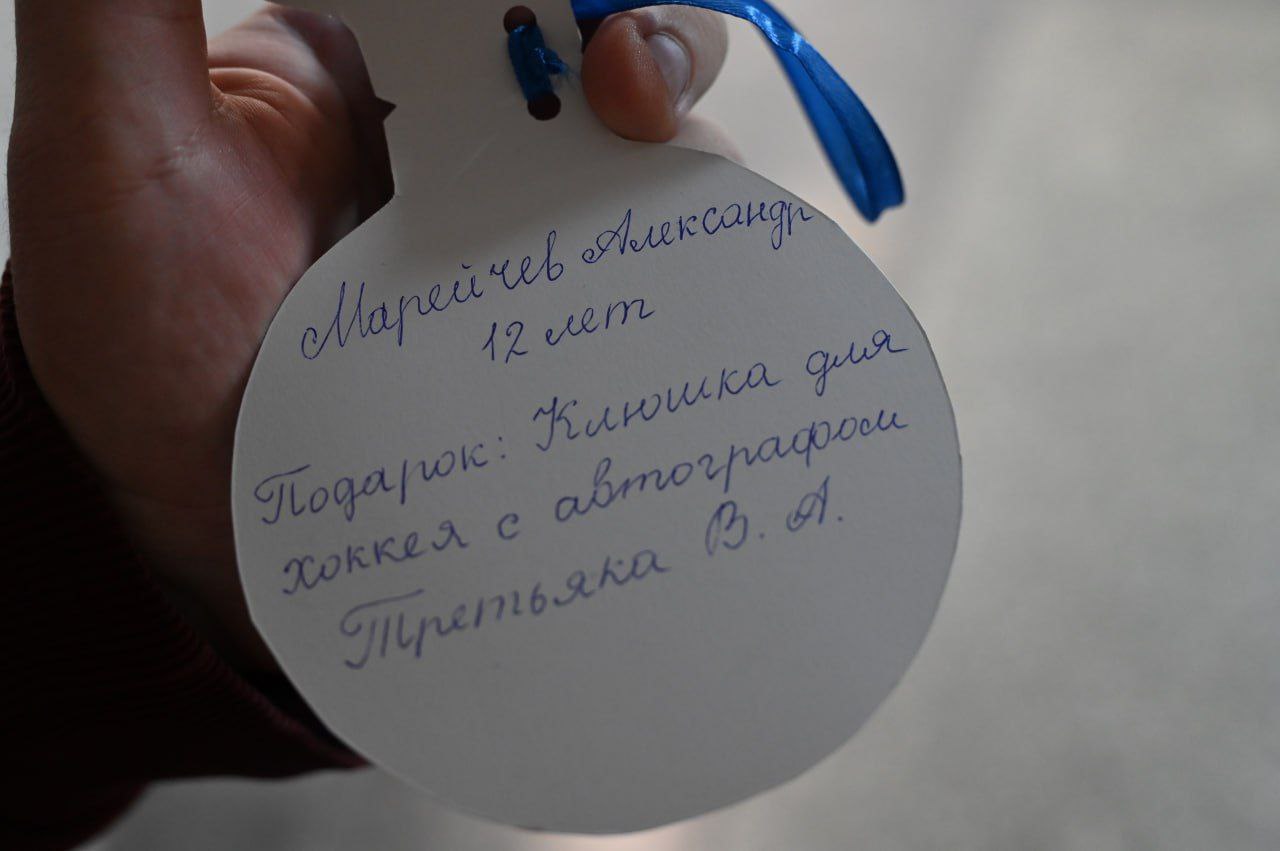 Марейчев Александр
12 лет
Подарок: Клюшка для
хоккея с автографом
Третьяка В. А.